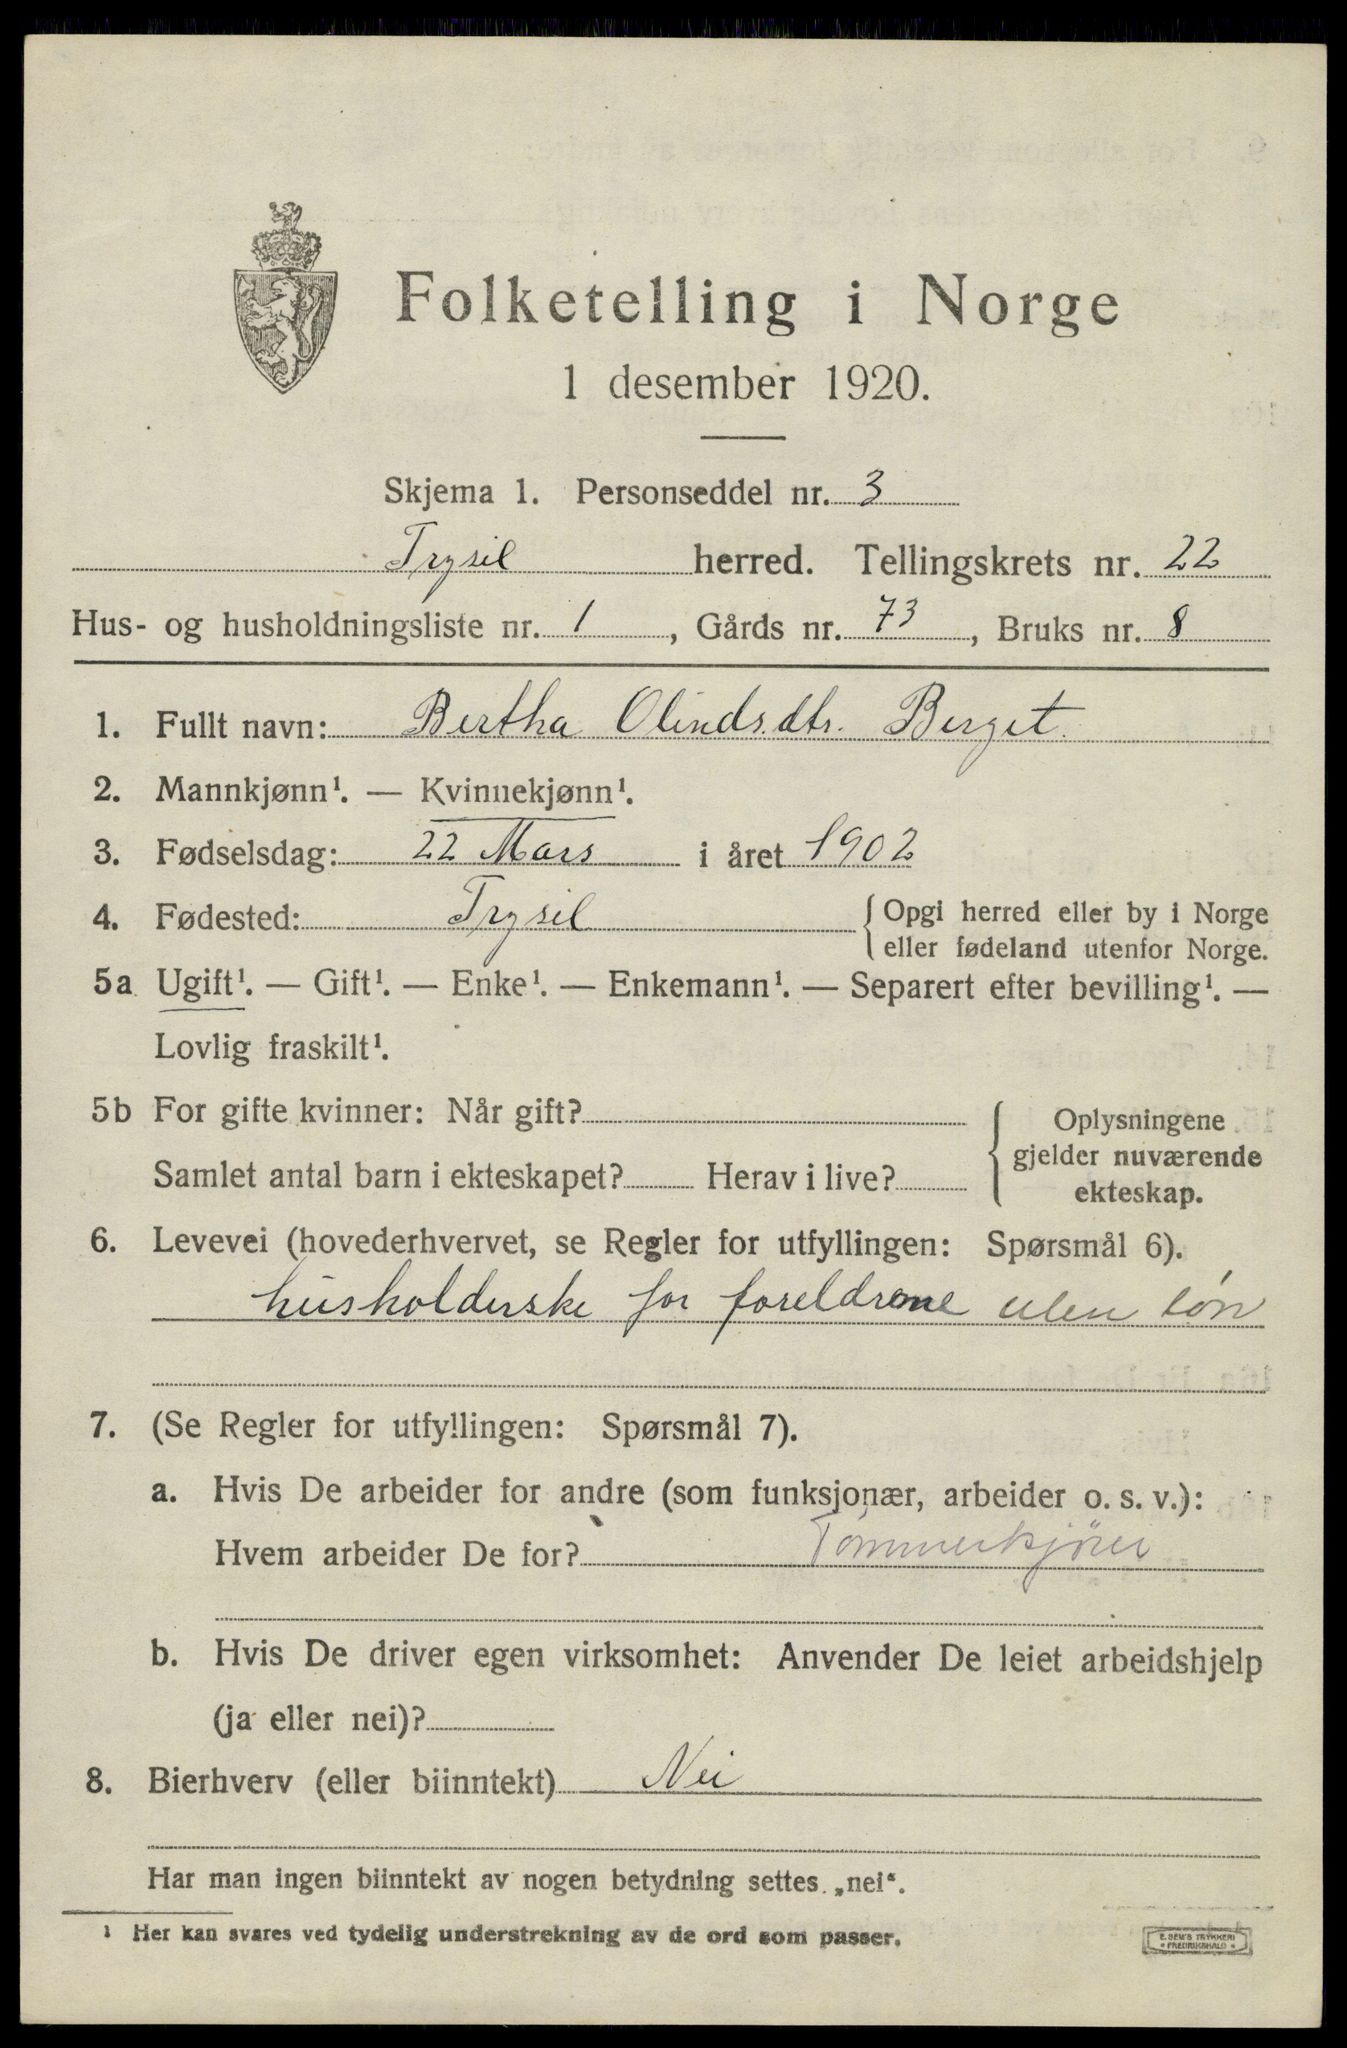 Folketelling i Norge
1 desember 1920.
Skjema 1. Personseddel nr. 3
Trysil herred. Tellingskrets nr. 22
Hus- og husholdningsliste nr. 1, Gårds nr. 73, Bruks nr. 8
1. Fullt navn: Bertha Olindsdtr. Berget.
2. Mannkjønn¹. — Kvinnekjønn¹.
3. Fødselsdag: 22 Mars i året 1902
4. Fødested: Trysil { Opgi herred eller by i Norge
eller fødeland utenfor Norge.
5a Ugift¹. — Gift¹. — Enke¹. — Enkemann¹. — Separert efter bevilling¹. —
Lovlig fraskilt¹.
5b For gifte kvinner: Når gift?
Samlet antal barn i ekteskapet? Herav i live?
{ Oplysningene
gjelder nuværende
ekteskap.
6. Levevei (hovederhvervet, se Regler for utfyllingen: Spørsmål 6).
husholderske for foreldrene uten løn
7. (Se Regler for utfyllingen: Spørsmål 7).
a. Hvis De arbeider for andre (som funksjonær, arbeider o. s. v.):
Hvem arbeider De for? Tømmerkjører
b. Hvis De driver egen virksomhet: Anvender De leiet arbeidshjelp
(ja eller nei)?
8. Bierhverv (eller biinntekt) Nei
Har man ingen biinntekt av nogen betydning settes „nei“.
¹ Her kan svares ved tydelig understrekning av de ord som passer.
E. SEM'S TRYKKERI
• FREDRIKSHALD •